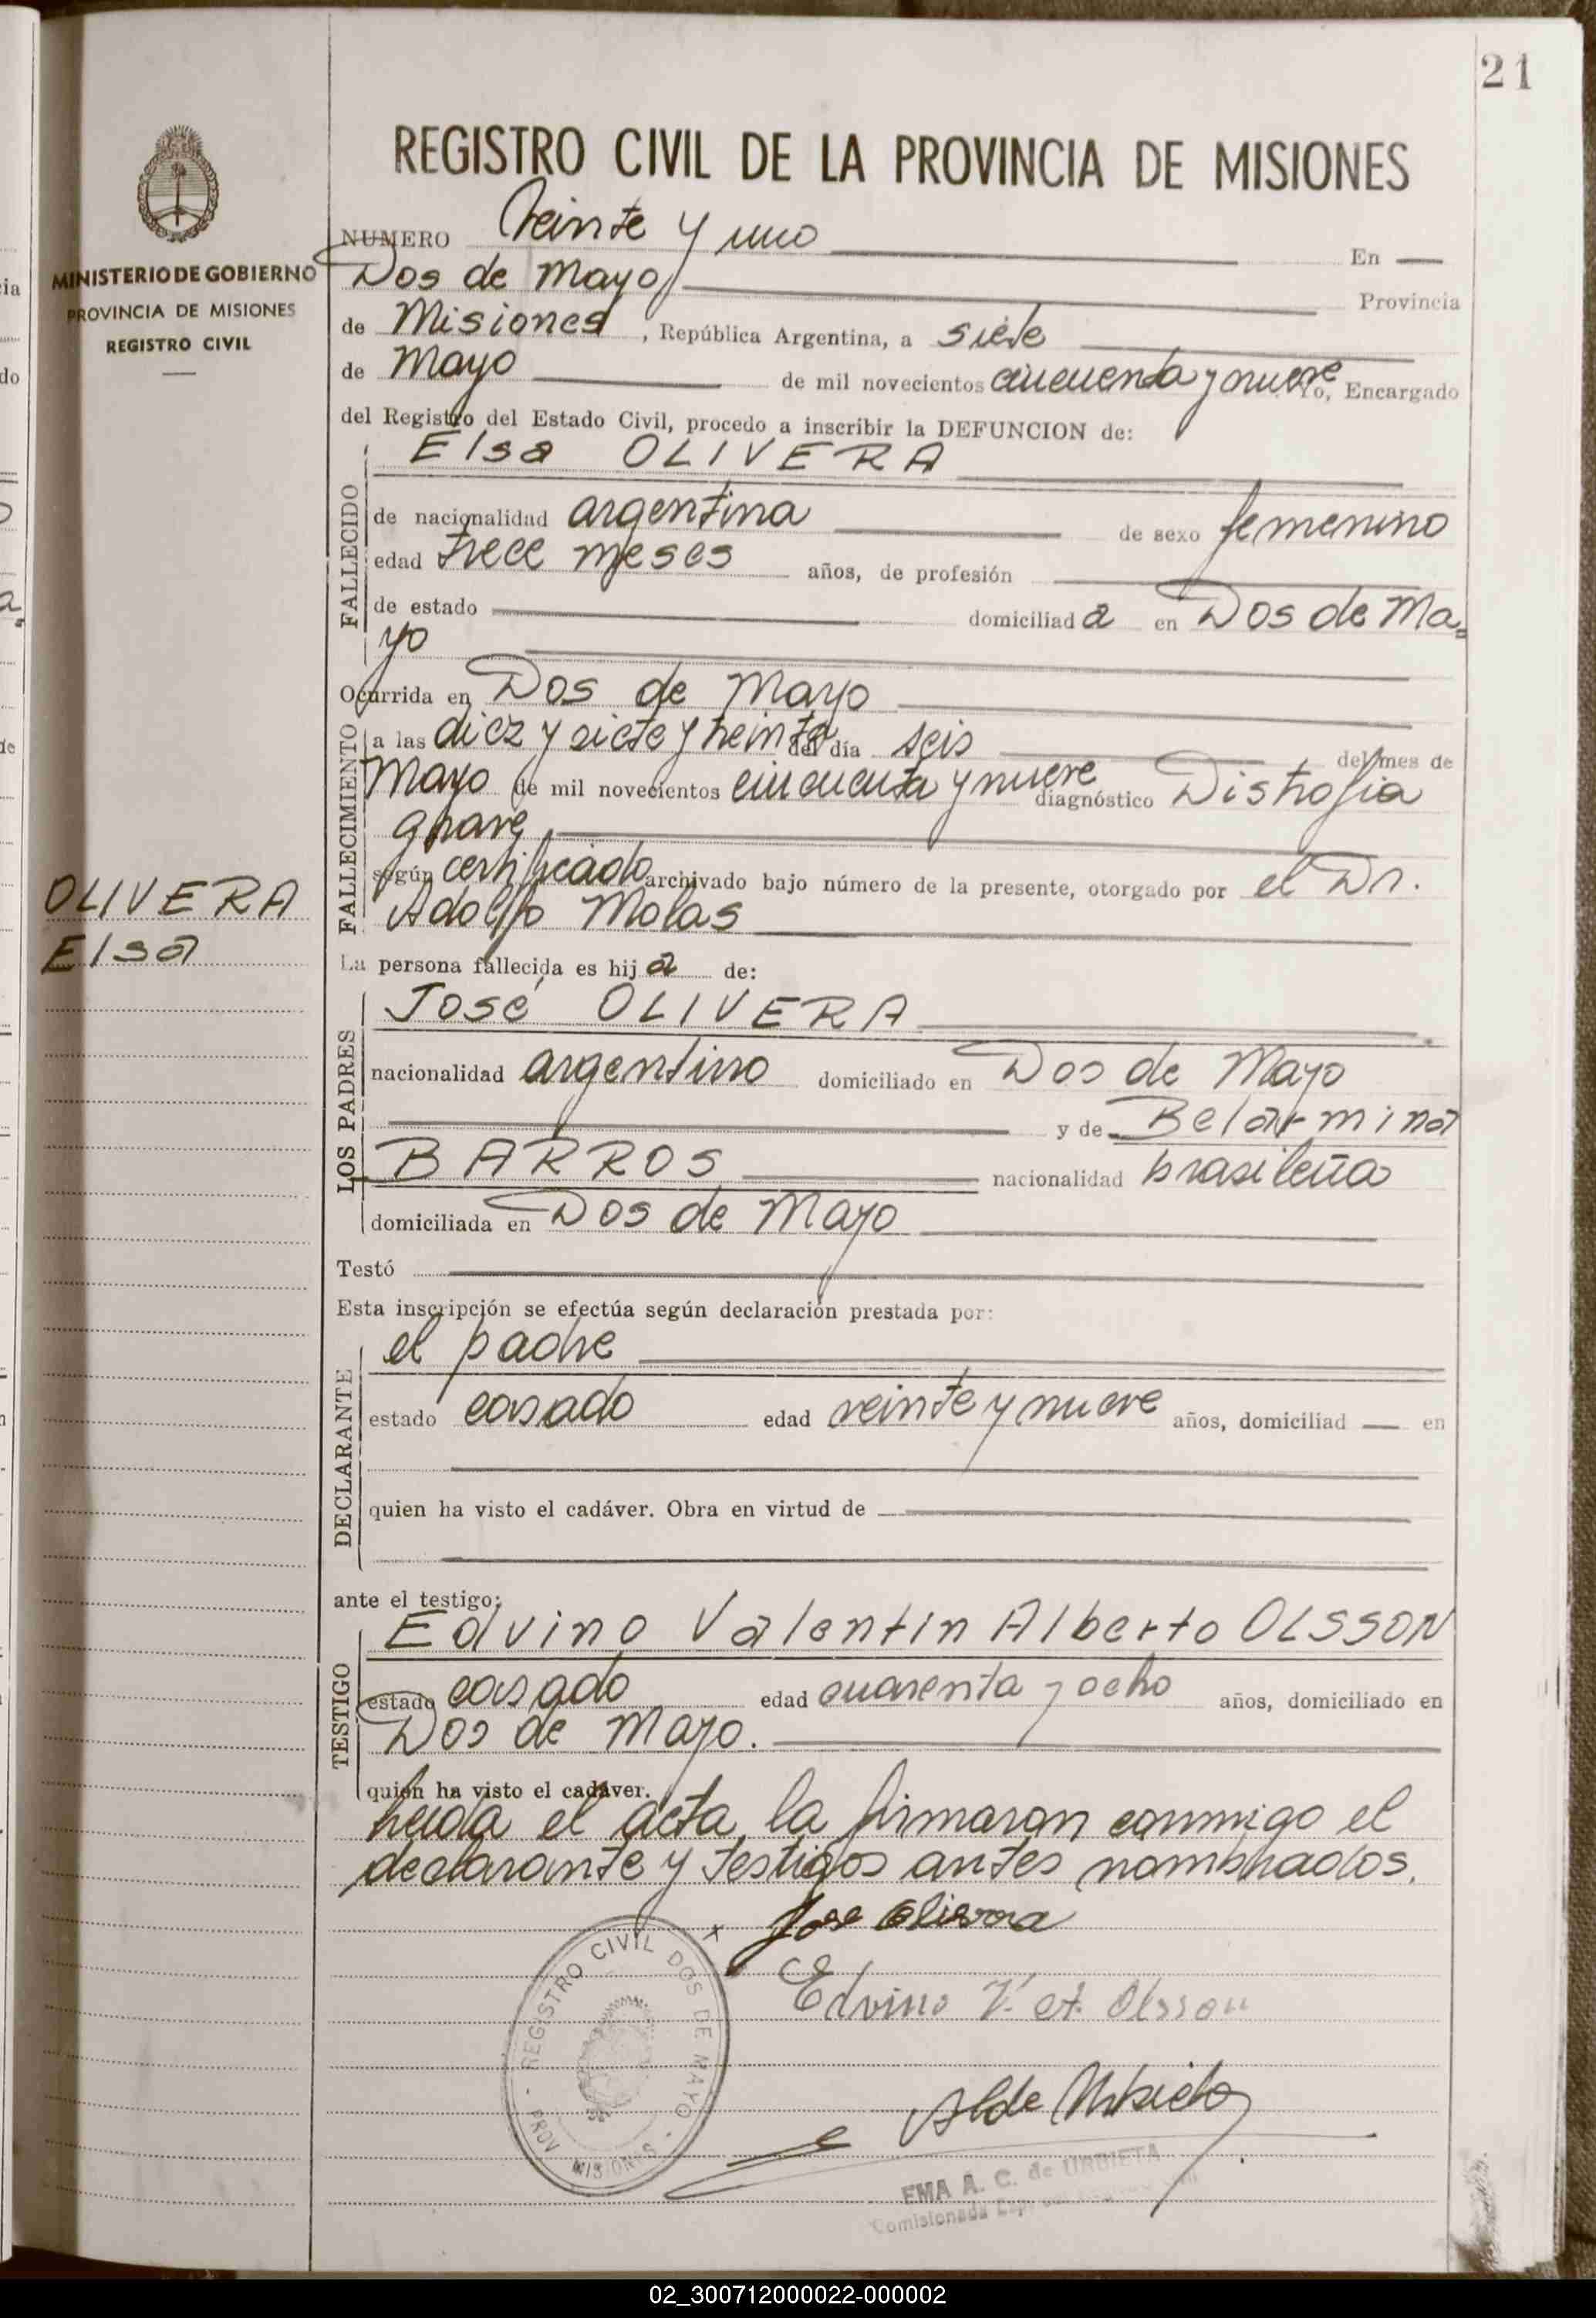 21
REGISTRO CIVIL DE LA PROVINCIA DE MISIONES
MINISTERIO DE GOBIERNO
PROVINCIA DE MISIONES
REGISTRO CIVIL
NUMERO Veinte y uno En
Dos de Mayo Provincia
de Misiones, República Argentina, a siete
de Mayo de mil novecientos cincuenta y nueve Yo, Encargado
del Registro del Estado Civil, procedo a inscribir la DEFUNCION de:
Elsa OLIVERA
FALLECIDO
de nacionalidad argentina de sexo femenino
edad trece meses años, de profesión
de estado domiciliad a en Dos de Ma=
yo
Ocurrida en Dos de Mayo
FALLECIMIENTO
a las diez y siete y treinta del día seis del mes de
Mayo de mil novecientos cincuenta y nueve diagnóstico Distrofia
grave
según certificado archivado bajo número de la presente, otorgado por el Dr.
Adolfo Molas
OLIVERA
Elsa
La persona fallecida es hij a de:
LOS PADRES
José OLIVERA
nacionalidad argentino domiciliado en Dos de Mayo
y de Belarmina
BARROS nacionalidad brasileña
domiciliada en Dos de Mayo
Testó
Esta inscripción se efectúa según declaración prestada por:
DECLARANTE
el padre
estado casado edad veinte y nueve años, domiciliad en
quien ha visto el cadáver. Obra en virtud de
ante el testigo:
TESTIGO
Edvino Valentin Alberto OLSSON
estado casado edad cuarenta y ocho años, domiciliado en
Dos de Mayo.
quien ha visto el cadáver.
Leida el acta, la firmaron conmigo el
declarante y testigos antes nombrados.
x Jose Olivera
Edvino V. A. Olsson
REGISTRO CIVIL DOS DE MAYO
PROV MISIONES
EMA A. C. de URBIETA
Comisionada
02_300712000022-000002